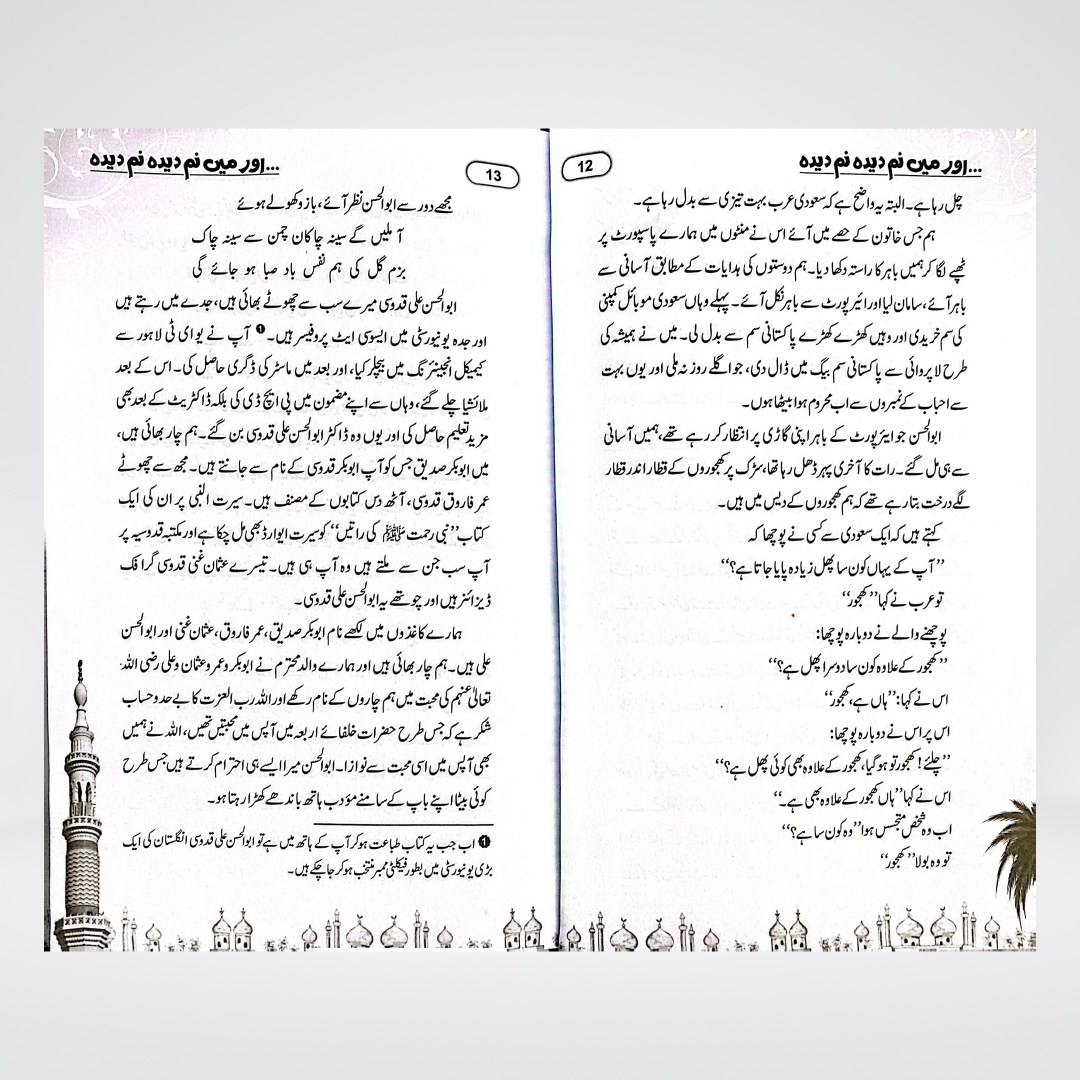 ...اور میں نم دیدہ نم دیدہ
12
چل رہا ہے۔ البتہ یہ واضح ہے کہ سعودی عرب بہت تیزی سے بدل رہا ہے۔
ہم جس خاتون کے حصے میں آئے اس نے منٹوں میں ہمارے پاسپورٹ پر
ٹھپے لگا کر ہمیں باہر کا راستہ دکھا دیا۔ ہم دوستوں کی ہدایات کے مطابق آسانی سے
باہر آئے، سامان لیا اور ائیر پورٹ سے باہر نکل آئے۔ پہلے وہاں سعودی موبائل کمپنی
کی سم خریدی اور وہیں کھڑے کھڑے پاکستانی سم سے بدل لی۔ میں نے ہمیشہ کی
طرح لا پروائی سے پاکستانی سم بیگ میں ڈال دی، جو اگلے روز نہ ملی اور یوں بہت
سے احباب کے نمبروں سے اب محروم ہوا بیٹھا ہوں۔
ابوالحسن جو ایئر پورٹ کے باہر اپنی گاڑی پر انتظار کر رہے تھے، ہمیں آسانی
سے ہی مل گئے۔ رات کا آخری پہر ڈھل رہا تھا، سڑک پر کھجوروں کے قطار اندر قطار
لگے درخت بتا رہے تھے کہ ہم کھجوروں کے دیس میں ہیں۔
کہتے ہیں کہ ایک سعودی سے کسی نے پوچھا کہ
”آپ کے یہاں کون سا پھل زیادہ پایا جاتا ہے؟“
تو عرب نے کہا ”کھجور“
پوچھنے والے نے دوبارہ پوچھا:
”کھجور کے علاوہ کون سا دوسرا پھل ہے؟“
اس نے کہا: ”ہاں ہے، کھجور“
اس پر اس نے دوبارہ پوچھا:
”چلئے! کھجور تو ہو گیا، کھجور کے علاوہ بھی کوئی پھل ہے؟“
اس نے کہا ”ہاں کھجور کے علاوہ بھی ہے۔“
اب وہ شخص متجسس ہوا ”وہ کون سا ہے؟“
تو وہ بولا ”کھجور“
...اور میں نم دیدہ نم دیدہ
13
مجھے دور سے ابوالحسن نظر آئے، بازو کھولے ہوئے
آ ملیں گے سینہ چاکان چمن سے سینہ چاک
بزم گل کی ہم نفس باد صبا ہو جائے گی
ابوالحسن علی قدوسی میرے سب سے چھوٹے بھائی ہیں، جدے میں رہتے ہیں
اور جدہ یونیورسٹی میں ایسوسی ایٹ پروفیسر ہیں۔ ❶ آپ نے یو ای ٹی لاہور سے
کیمیکل انجینئرنگ میں بیچلر کیا، اور بعد میں ماسٹر کی ڈگری حاصل کی۔ اس کے بعد
ملائشیا چلے گئے، وہاں سے اپنے مضمون میں پی ایچ ڈی کی بلکہ ڈاکٹریٹ کے بعد بھی
مزید تعلیم حاصل کی اور یوں وہ ڈاکٹر ابوالحسن علی قدوسی بن گئے۔ ہم چار بھائی ہیں،
میں ابوبکر صدیق جس کو آپ ابوبکر قدوسی کے نام سے جانتے ہیں۔ مجھ سے چھوٹے
عمر فاروق قدوسی، آٹھ دس کتابوں کے مصنف ہیں۔ سیرت النبی پر ان کی ایک
کتاب ”نبی رحمت ﷺ کی راتیں“ کو سیرت ایوارڈ بھی مل چکا ہے اور مکتبہ قدوسیہ پر
آپ سب جن سے ملتے ہیں وہ آپ ہی ہیں۔ تیسرے عثمان غنی قدوسی گرافک
ڈیزائنر ہیں اور چوتھے یہ ابوالحسن علی قدوسی۔
ہمارے کاغذوں میں لکھے نام ابوبکر صدیق، عمر فاروق، عثمان غنی اور ابوالحسن
علی ہیں۔ ہم چار بھائی ہیں اور ہمارے والد محترم نے ابوبکر و عمر و عثمان و علی رضی اللہ
تعالیٰ عنہم کی محبت میں ہم چاروں کے نام رکھے اور اللہ رب العزت کا بے حد و حساب
شکر ہے کہ جس طرح حضرات خلفائے اربعہ میں آپس میں محبتیں تھیں، اللہ نے ہمیں
بھی آپس میں اسی محبت سے نوازا۔ ابوالحسن میرا ایسے ہی احترام کرتے ہیں جس طرح
کوئی بیٹا اپنے باپ کے سامنے مؤدب ہاتھ باندھے کھڑا رہتا ہو۔
❶ اب جب یہ کتاب طباعت ہو کر آپ کے ہاتھ میں ہے تو ابوالحسن علی قدوسی انگلستان کی ایک
بڑی یونیورسٹی میں بطور فیکلٹی ممبر منتخب ہو کر جا چکے ہیں۔